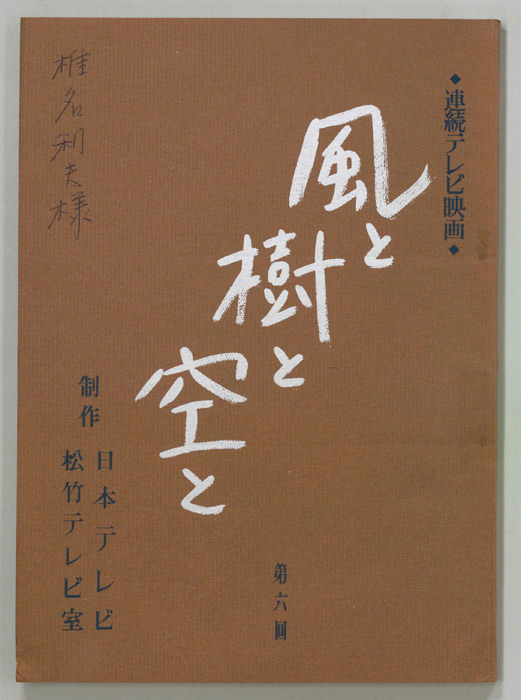 ◆連続テレビ映画◆
風と
樹と
空と
第六回
制作
日本テレビ
松竹テレビ室
椎名利夫様